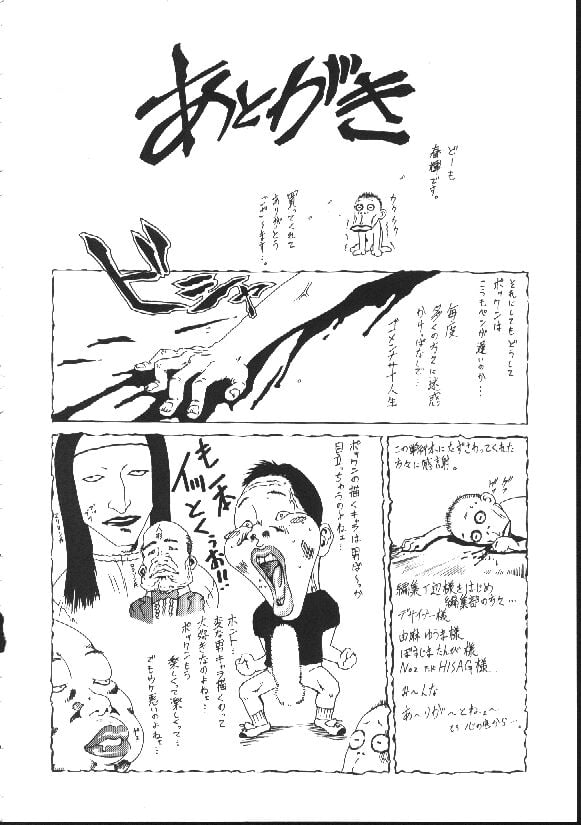 あとがき
どーも
春輝です。
カクカク
買ってくれて
ありがとう
ございます…。
ビシャ
それにしてもどうして
ボックンは
こうもペンが遅いのか…
毎度
多くの方々に迷惑
かけっぱなしで…
ゴメンナサイ人生
この単行本にたずさわってくれた
方々に感謝。
編集T辺様をはじめ
編集部の方々…
デザイナー様
由麻ゆうま様
ぼうじまたんが様
み〜んな
あ〜りが〜とね〜
心の底から…。
ボックンの描くキャラは男ばっか
目立っちゃうのよねェ…
もー本
イッとくぅぉ!!
ホント…
変な男キャラ描くのって
大好きなのよねェ…
ボックンもう
楽しくって楽しくって…
でもウケ悪いのよねェ…